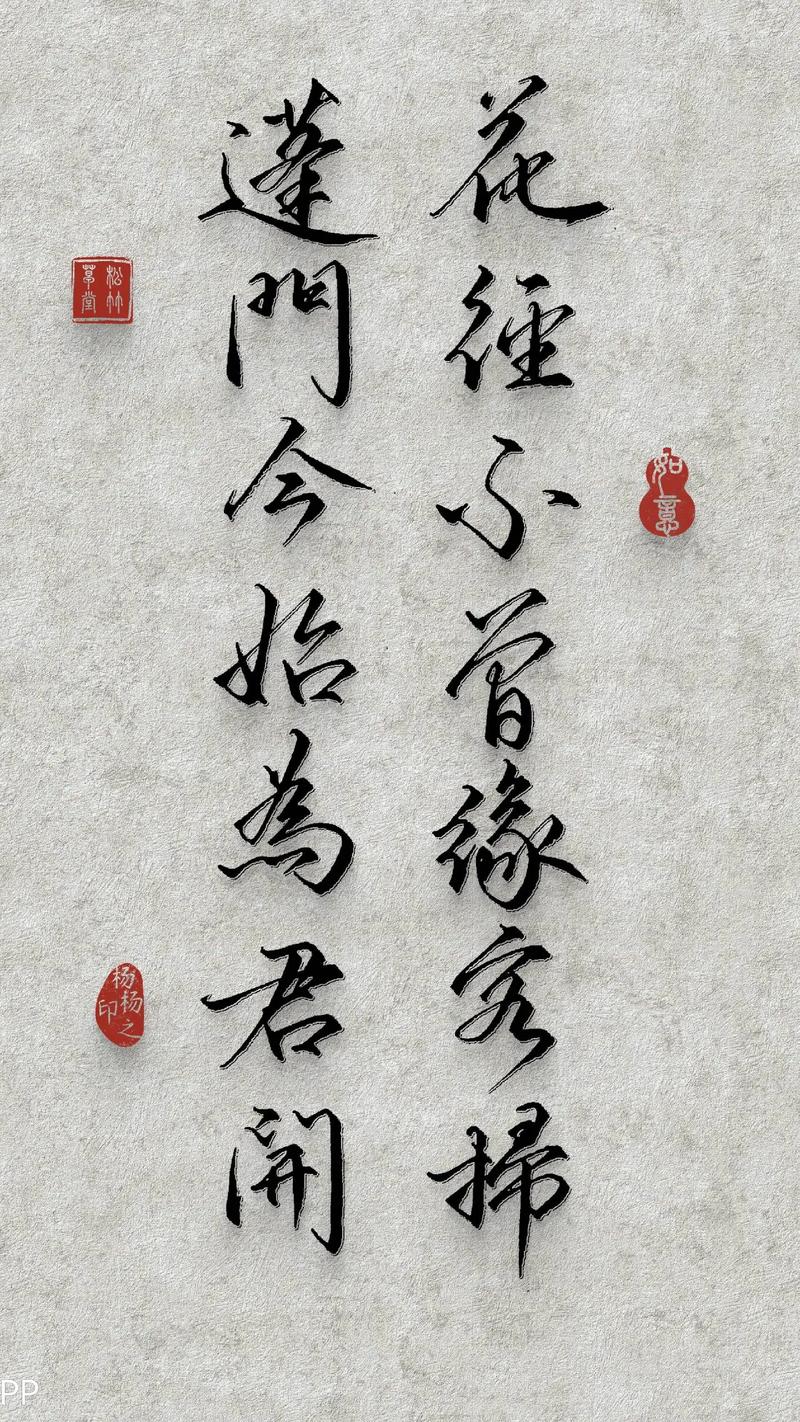 花徑不曾緣客掃
蓬門今始為君開
如意
松竹草堂
杨杨之印
PP